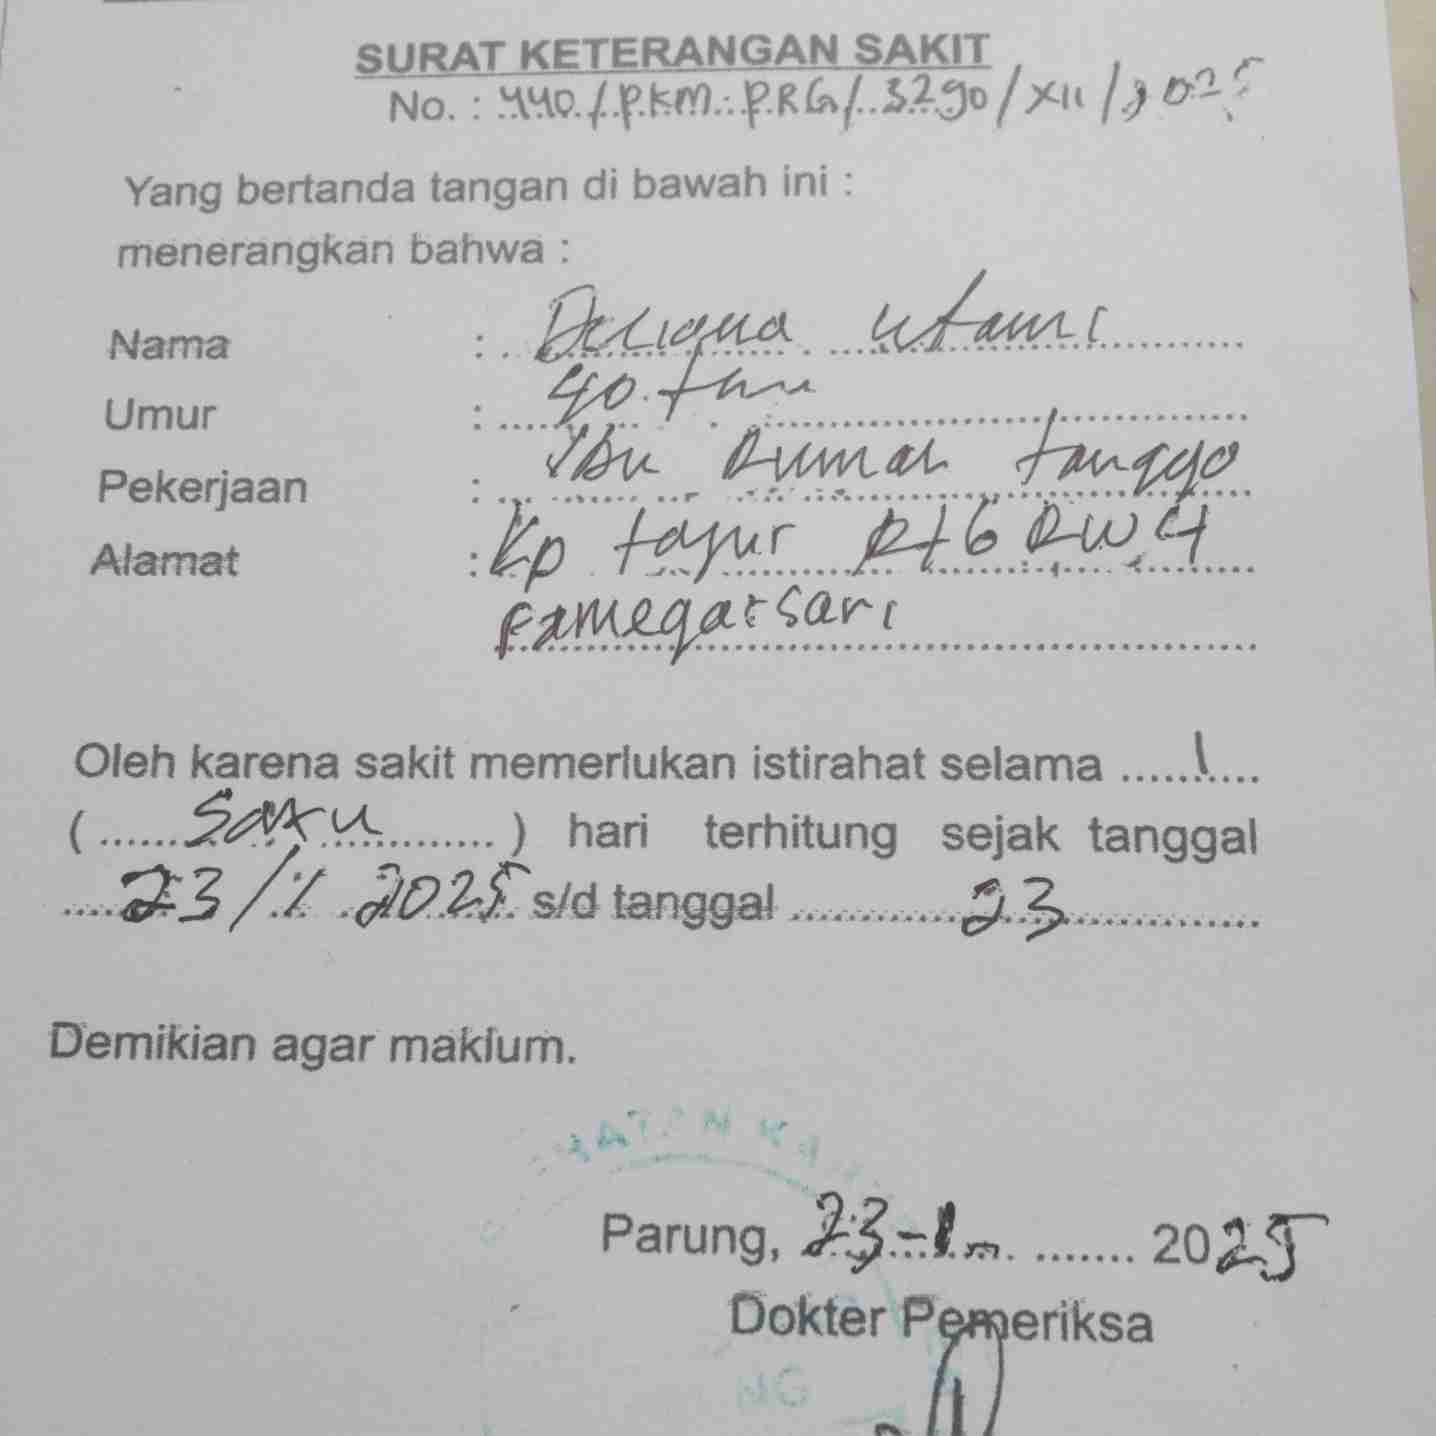 SURAT KETERANGAN SAKIT
No. : 440/PKM.PRG/3290/XII/2025
Yang bertanda tangan di bawah ini :
menerangkan bahwa :
Nama : Deliana utami
Umur : 40 thn
Pekerjaan : Ibu Rumah tangga
Alamat : Kp tajur Rt 6 RW 4
Pamegarsari
Oleh karena sakit memerlukan istirahat selama 1
( satu ) hari terhitung sejak tanggal
23/1 2025 s/d tanggal 23
Demikian agar maklum.
Parung, 23-1- 2025
Dokter Pemeriksa
NG